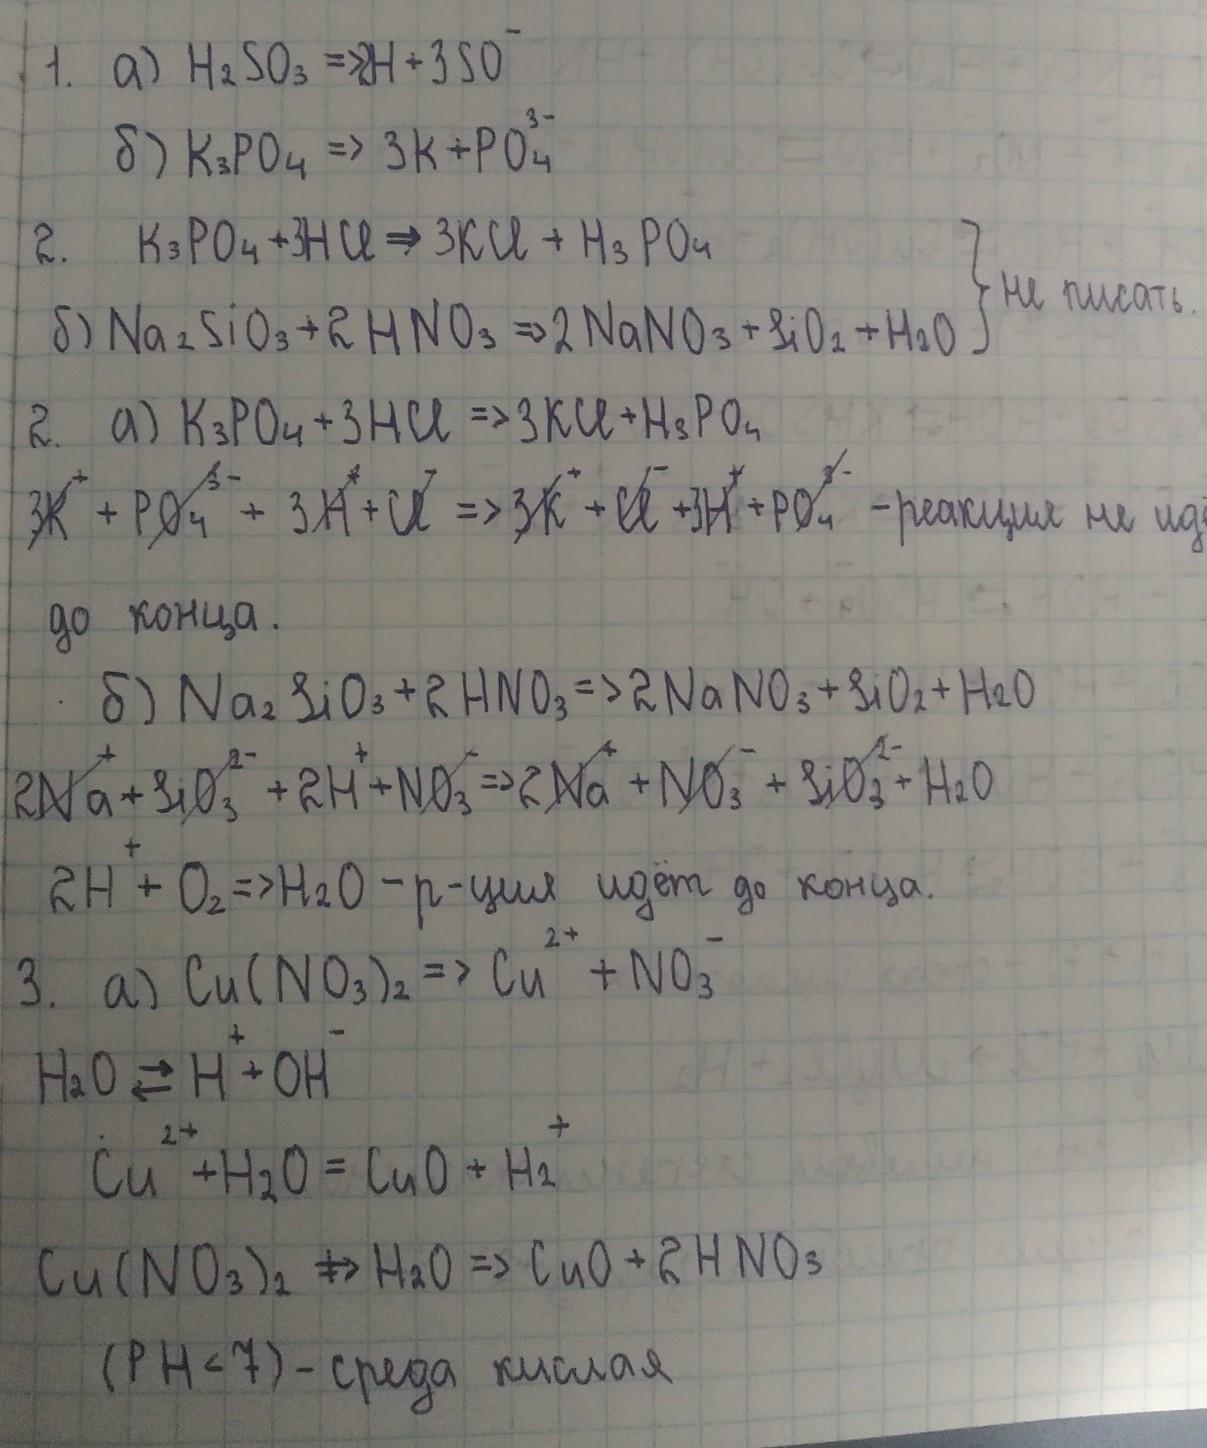 1. а) H₂SO₃ => 2H + 3SO⁻
б) K₃PO₄ => 3K + PO₄³⁻
2. K₃PO₄ + 3HCl => 3KCl + H₃PO₄
б) Na₂SiO₃ + 2HNO₃ => 2NaNO₃ + SiO₂ + H₂O } не писать.
2. а) K₃PO₄ + 3HCl => 3KCl + H₃PO₄
3K⁺ + PO₄³⁻ + 3H⁺ + Cl⁻ => 3K⁺ + Cl⁻ + 3H⁺ + PO₄³⁻ - реакция не идё
до конца.
б) Na₂SiO₃ + 2HNO₃ => 2NaNO₃ + SiO₂ + H₂O
2Na⁺ + SiO₃²⁻ + 2H⁺ + NO₃⁻ => 2Na⁺ + NO₃⁻ + SiO₃²⁻ + H₂O
2H⁺ + O₂ => H₂O - р-ция идёт до конца.
3. а) Cu(NO₃)₂ => Cu²⁺ + NO₃⁻
H₂O ⇄ H⁺ + OH⁻
Cu²⁺ + H₂O = CuO + H₂⁺
Cu(NO₃)₂ + H₂O => CuO + 2HNO₃
(PH < 7) - среда кислая